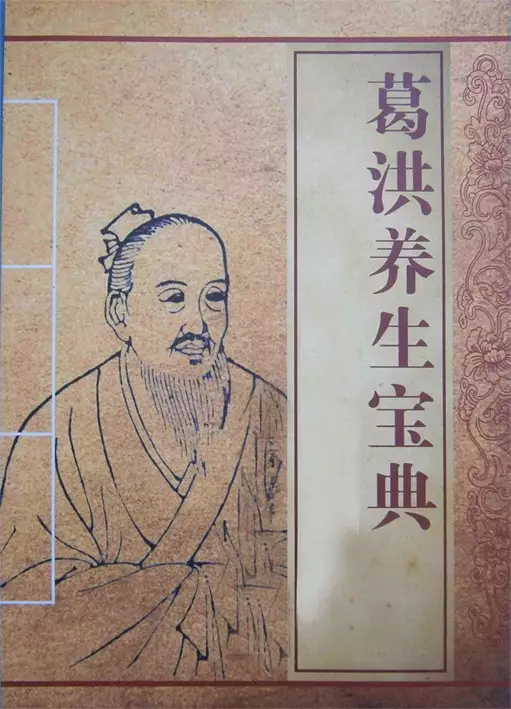 葛洪养生宝典